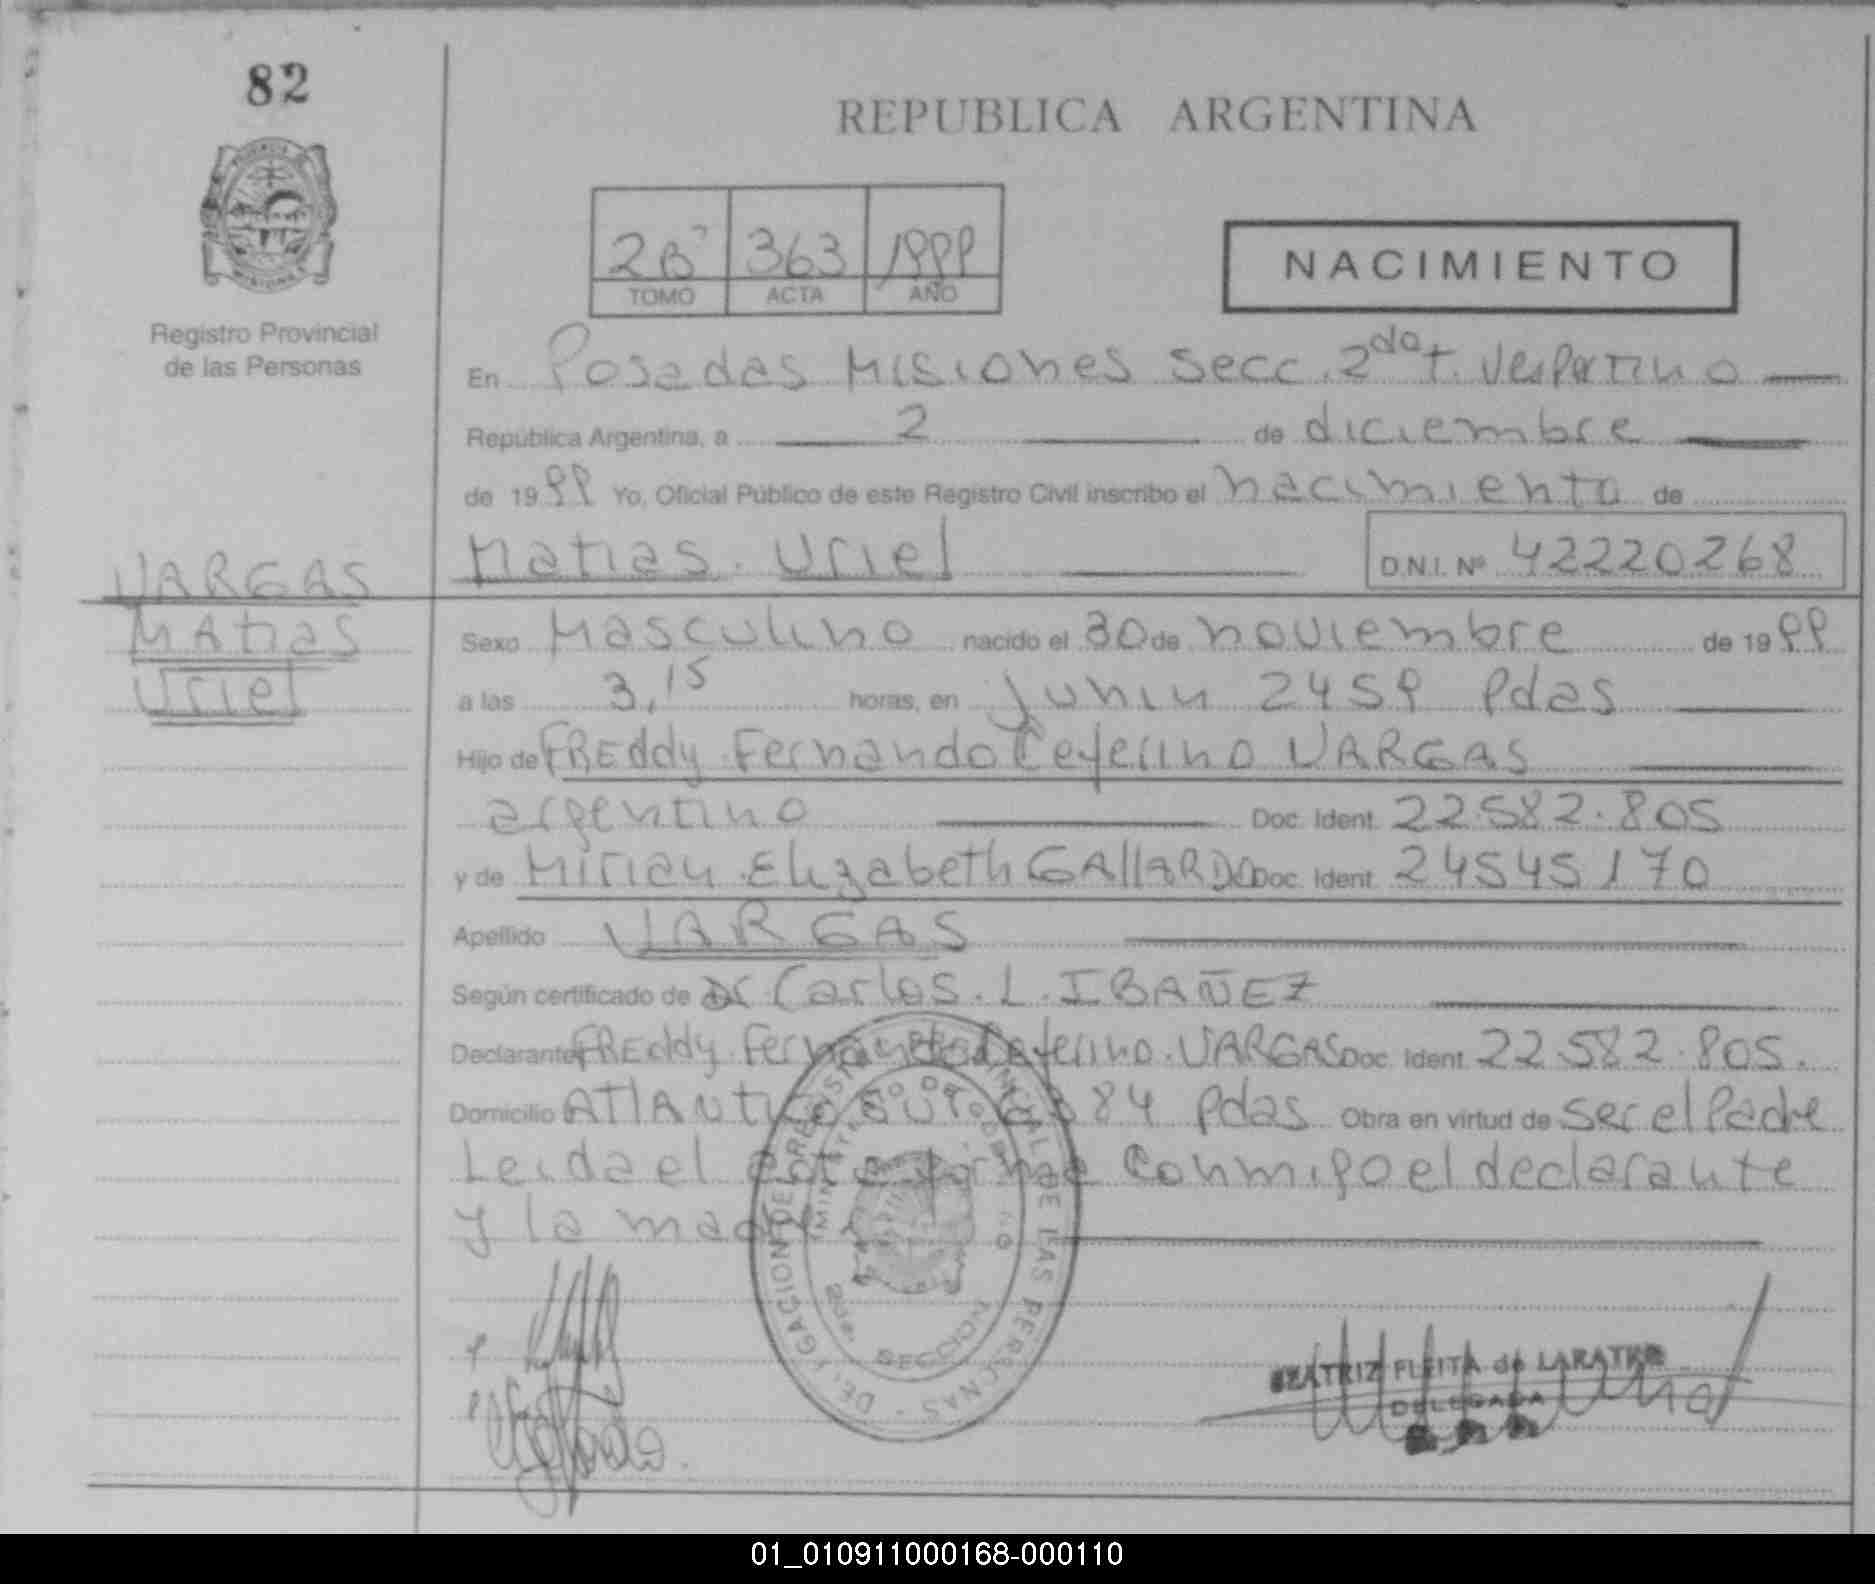 82
REPUBLICA ARGENTINA
2B 363 1999
TOMO ACTA AÑO
NACIMIENTO
Registro Provincial
de las Personas
En Posadas Misiones Secc. 2da t. Vespertino
República Argentina, a 2 de diciembre
de 1999 Yo, Oficial Público de este Registro Civil inscribo el nacimiento de
Matias Uriel D.N.I. Nº 42220268
VARGAS
Matias
Uriel
Sexo Masculino nacido el 30 de noviembre de 1999
a las 3,15 horas, en Junin 2459 Pdas
Hijo de FREddy Fernando Ceferino VARGAS
argentino Doc. Ident. 22.582.805
y de Mirian Elizabeth GAllARDO Doc. Ident. 24545170
Apellido VARGAS
Según certificado de Dr Carlos. L. IBAÑEZ
Declarante FREddy Fernando Ceferino VARGAS Doc. Ident. 22.582.805.
Domicilio ATlAntico 84 Pdas Obra en virtud de Ser el Padre
Leida el conmigo el declarante
y la madre
DELEGACION DEL REGISTRO PROVINCIAL DE LAS PERSONAS
SECCION
BEATRIZ FLEITA de LARATRO
DELEGADA
01_010911000168-000110